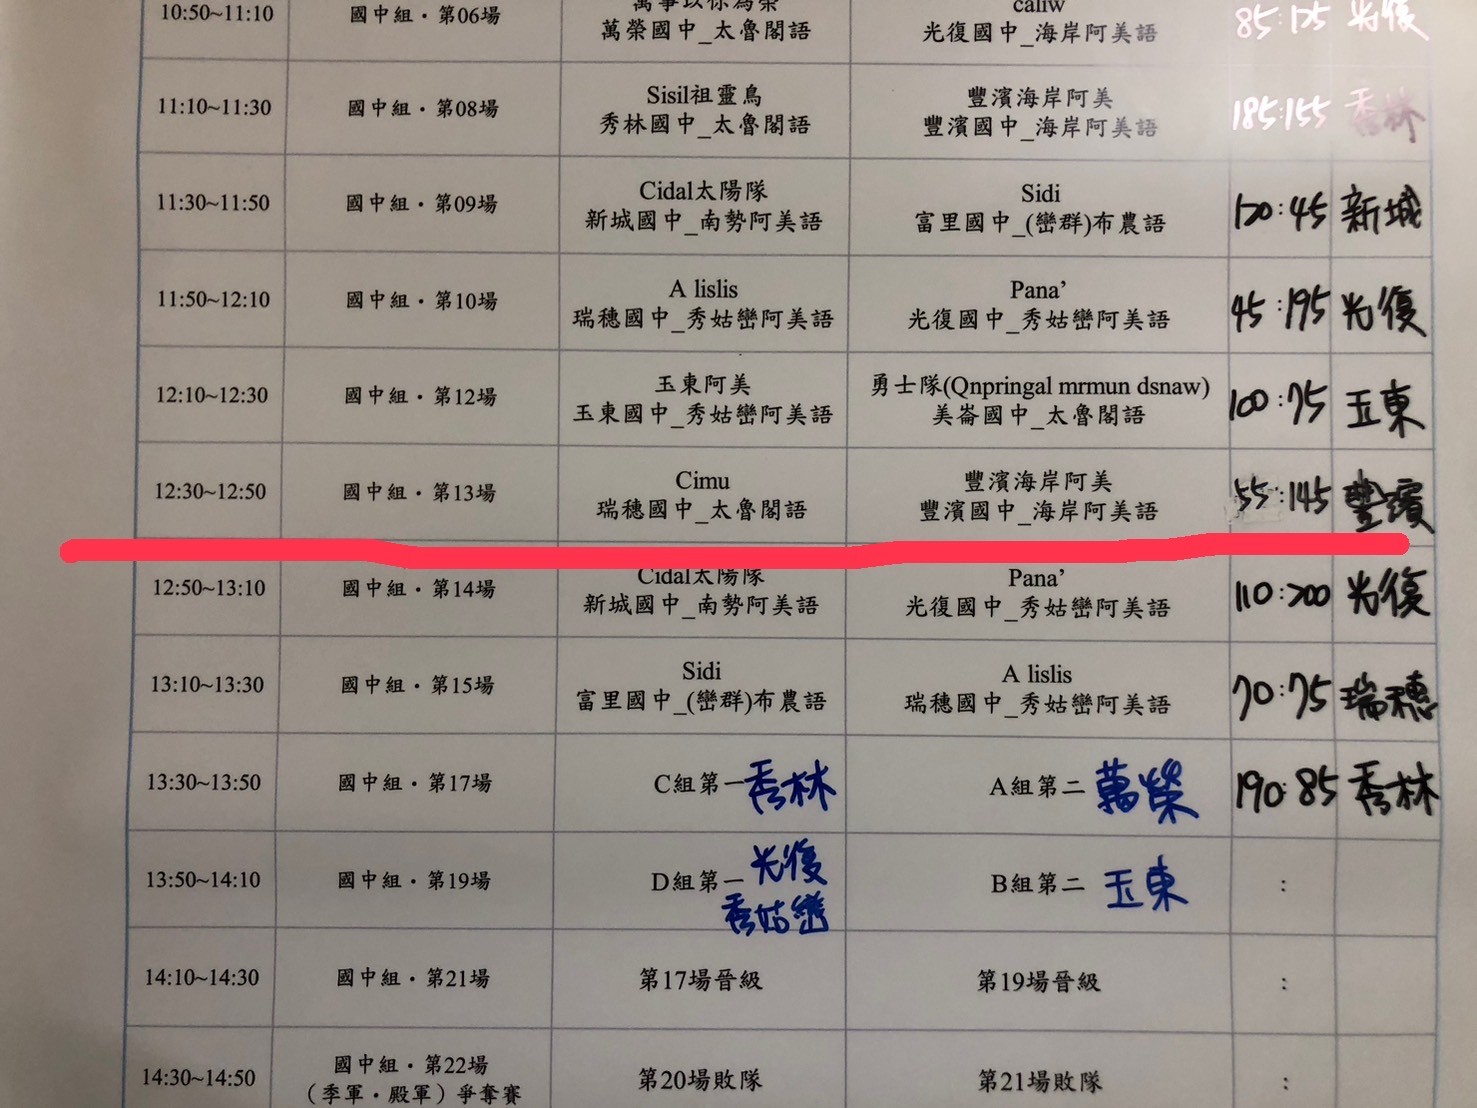 10:50~11:10 國中組・第06場 萬榮國中_太魯閣語 caliw 光復國中_海岸阿美語 85:125 光復
11:10~11:30 國中組・第08場 Sisil祖靈鳥 豐濱海岸阿美 185:155 秀林
秀林國中_太魯閣語 豐濱國中_海岸阿美語
11:30~11:50 國中組・第09場 Cidal太陽隊 Sidi 120:45 新城
新城國中_南勢阿美語 富里國中_(巒群)布農語
11:50~12:10 國中組・第10場 A lislis Pana’ 45:195 光復
瑞穗國中_秀姑巒阿美語 光復國中_秀姑巒阿美語
12:10~12:30 國中組・第12場 玉東阿美 勇士隊(Qnpringal mrmun dsnaw) 100:75 玉東
玉東國中_秀姑巒阿美語 美崙國中_太魯閣語
12:30~12:50 國中組・第13場 Cimu 豐濱海岸阿美 55:145 豐濱
瑞穗國中_太魯閣語 豐濱國中_海岸阿美語
12:50~13:10 國中組・第14場 Cidal太陽隊 Pana’ 110:200 光復
新城國中_南勢阿美語 光復國中_秀姑巒阿美語
13:10~13:30 國中組・第15場 Sidi A lislis 70:75 瑞穗
富里國中_(巒群)布農語 瑞穗國中_秀姑巒阿美語
13:30~13:50 國中組・第17場 C組第一 秀林 A組第二 萬榮 190:85 秀林
13:50~14:10 國中組・第19場 D組第一 光復 B組第二 玉東 :
秀姑巒
14:10~14:30 國中組・第21場 第17場晉級 第19場晉級 :
14:30~14:50 國中組・第22場 第20場敗隊 第21場敗隊 :
（季軍・殿軍）爭奪賽